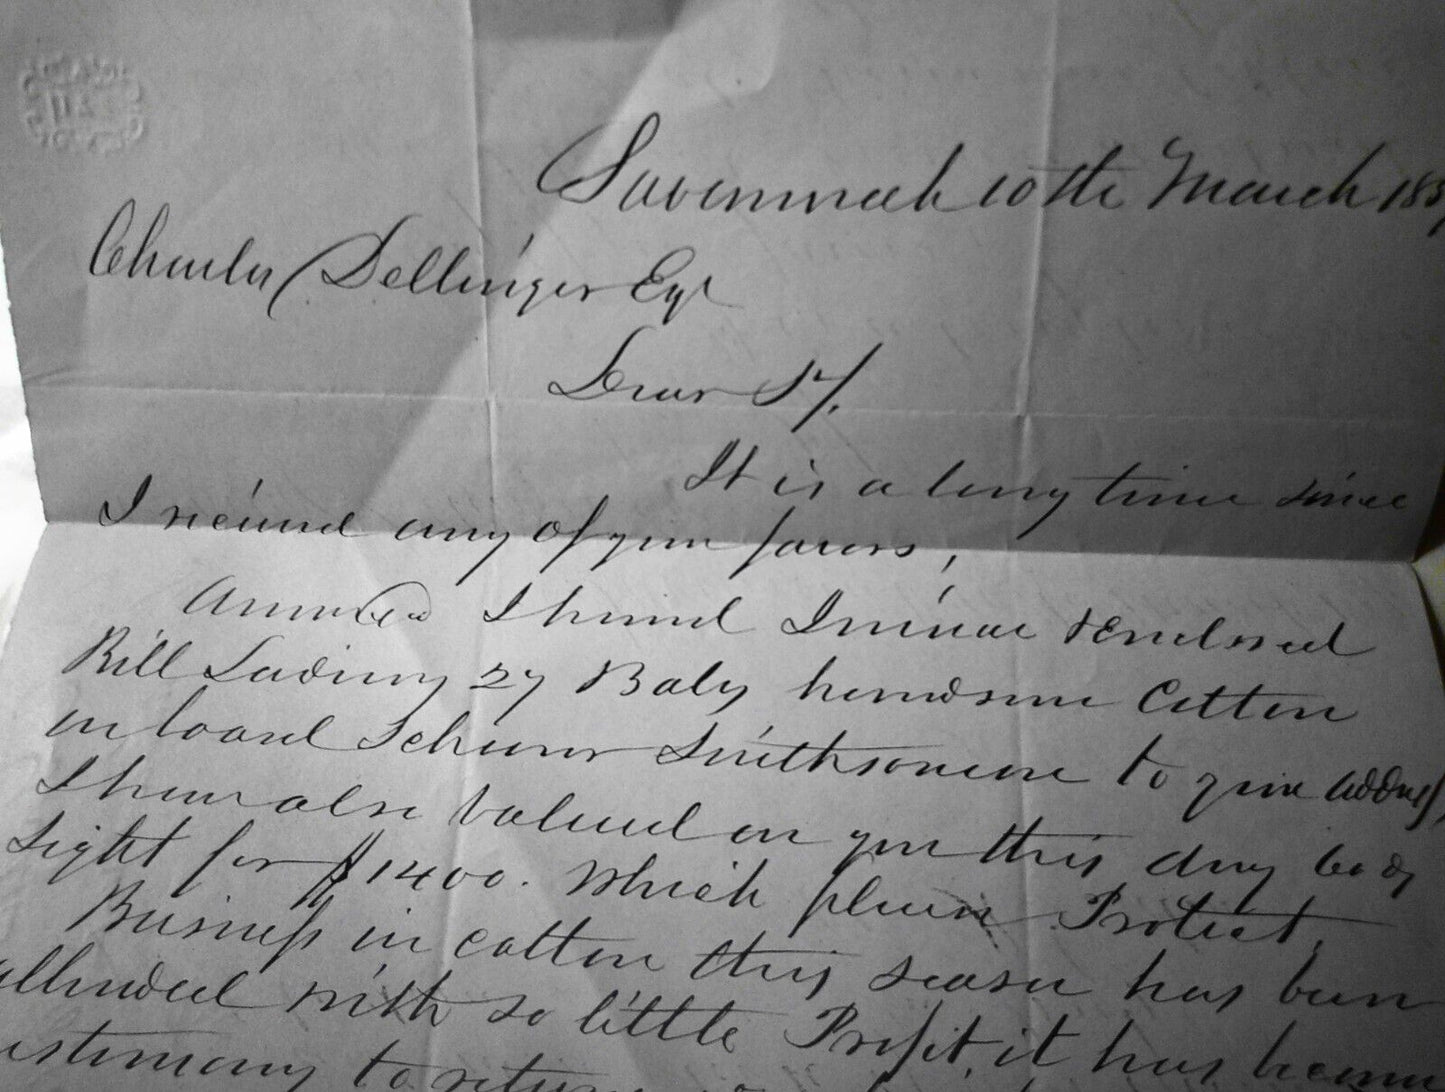 Savannah 10th March 185
Charles Dellinger Esqr
Dear Sir,
It is a long time since
I received any of your favors,
Annexed I hand Invoice & Enclosed
Bill Lading 27 Bales handsome Cotton
on board Schooner to your address,
I have also valued on you this day 60 ds
sight for $1400. Which please Protect,
Business in cotton this season has been
attended with so little Profit, it has become
to return